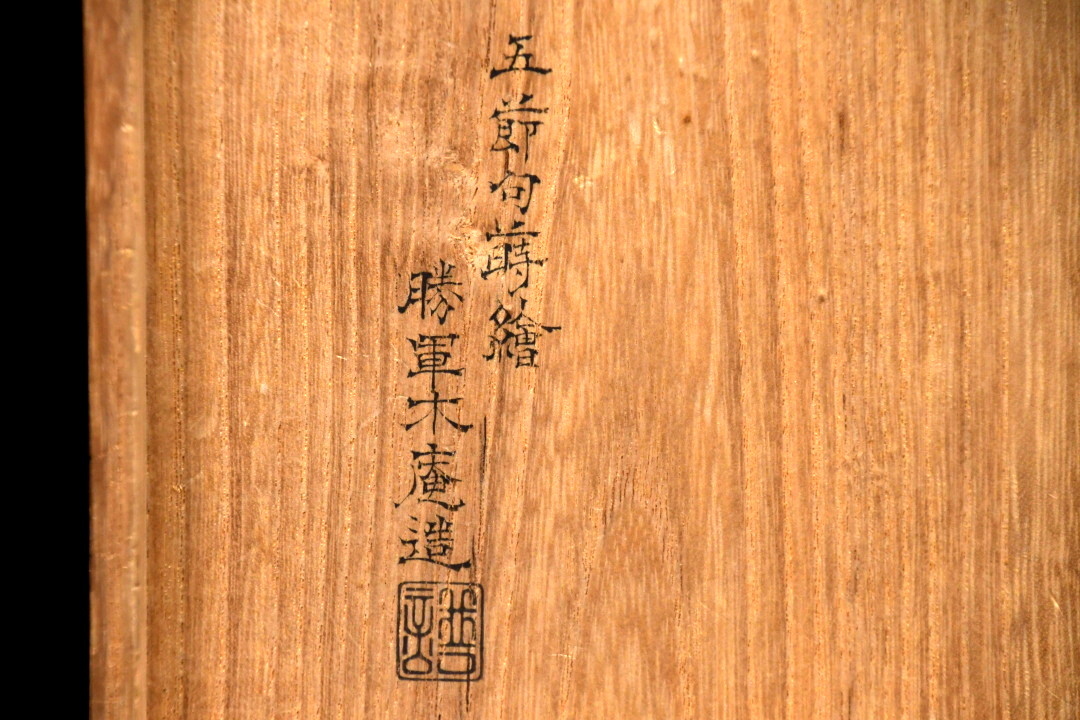 五節句蒔繪
勝軍木庵造